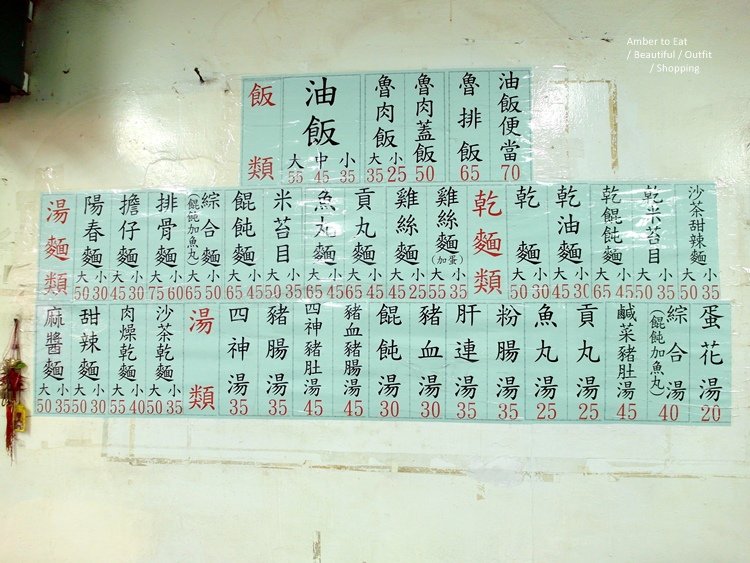 Amber to Eat
/ Beautiful / Outfit
/ Shopping
飯類
油飯 大55 中45 小35
魯肉飯 大35 小25
魯肉蓋飯 50
魯排飯 65
油飯便當 70
湯麵類
陽春麵 大50 小30
擔仔麵 大45 小30
排骨麵 大75 小60
綜合麵(餛飩加魚丸) 大65 小50
餛飩麵 大65 小45
米苔目 大50 小35
魚丸麵 大65 小45
貢丸麵 大65 小45
雞絲麵 大45 小25
雞絲麵(加蛋) 大55 小35
乾麵類
乾麵 大50 小30
乾油麵 大45 小30
乾餛飩麵 大65 小45
乾米苔目 大50 小35
沙茶甜辣麵 大50 小35
麻醬麵 大50 小35
甜辣麵 大50 小30
肉燥乾麵 大55 小40
沙茶乾麵 大50 小35
湯類
四神湯 35
豬腸湯 35
四神豬肚湯 45
豬血豬腸湯 45
餛飩湯 30
豬血湯 30
肝連湯 35
粉腸湯 35
魚丸湯 25
貢丸湯 25
鹹菜豬肚湯 45
綜合湯(餛飩加魚丸) 40
蛋花湯 20